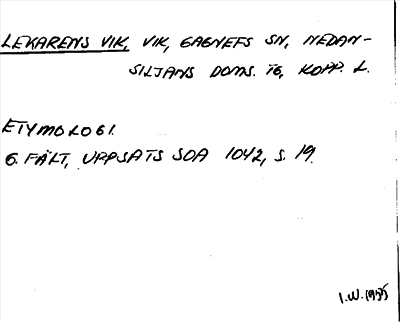 LEKARENS VIK, VIK, GAGNEFS SN, NEDAN-
SILJANS DOMS. TG, KOPP. L.
ETYMOLOGI.
G. FÄLT, UPPSATS SOA 1042, S. 19.
I.W. 1955